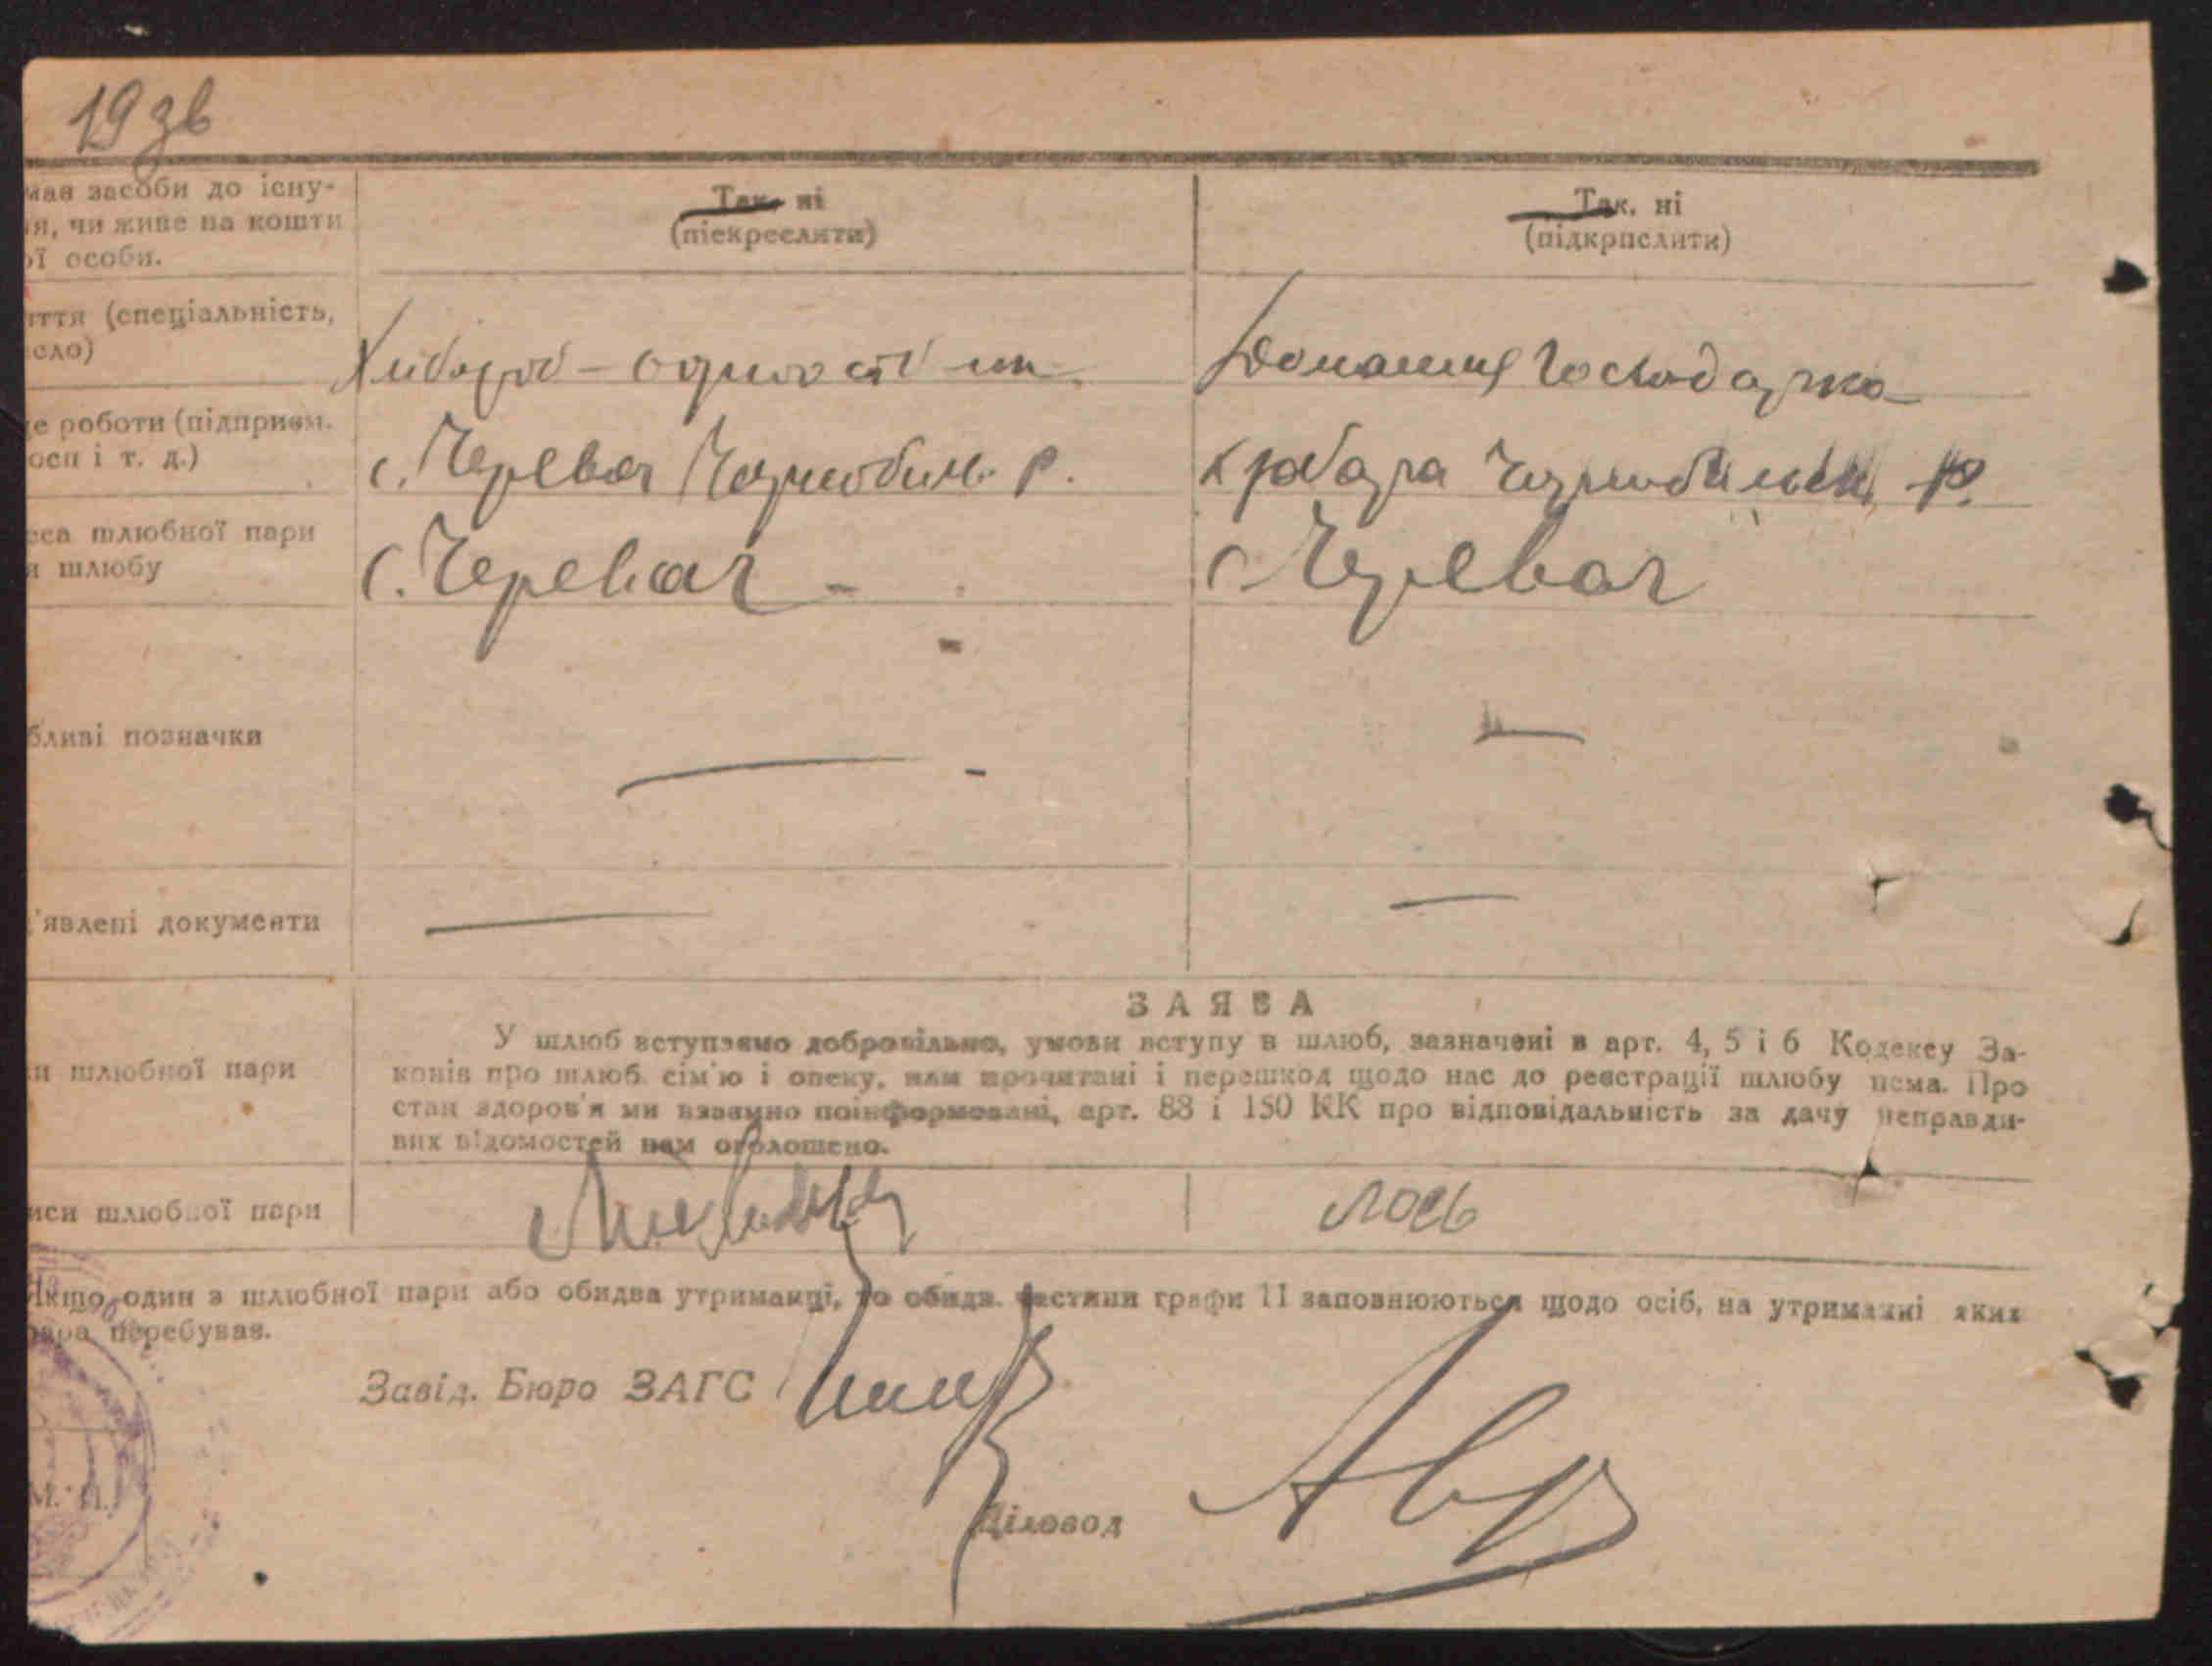 19 зв
має засоби до існу-
я, чи живе на кошти
ої особи.
Так, ні
(піскреслити)
Так, ні
(підкрпслити)
ття (спеціальність,
сло)
Хлібороб – одноосібник
Домашня господарка
е роботи (підприєм.
оси і т. д.)
с. Черевач Чорнобил. р.
Чорнобильськ р.
еса шлюбної пари
я шлюбу
с. Черевач
с Черевач
бливі позначки
'явлені документи
ЗАЯВА
и шлюбної пари
У шлюб вступаємо добровільно, умови вступу в шлюб, зазначені в арт. 4, 5 і 6 Кодексу За-
конів про шлюб сім'ю і опеку, нам прочитані і перешкод щодо нас до реєстрації шлюбу нема. Про
стан здоров'я ми взаємно поінформовані, арт. 88 і 150 КК про відповідальність за дачу неправди-
вих відомостей нам оголошено.
иси шлюбної пари
Лось
Якщо один з шлюбної пари або обидва утриманці, то обидв. частини графи 11 заповнюються щодо осіб, на утриманні яких
пара перебуває.
Завід. Бюро ЗАГС
М. П.
Діловод